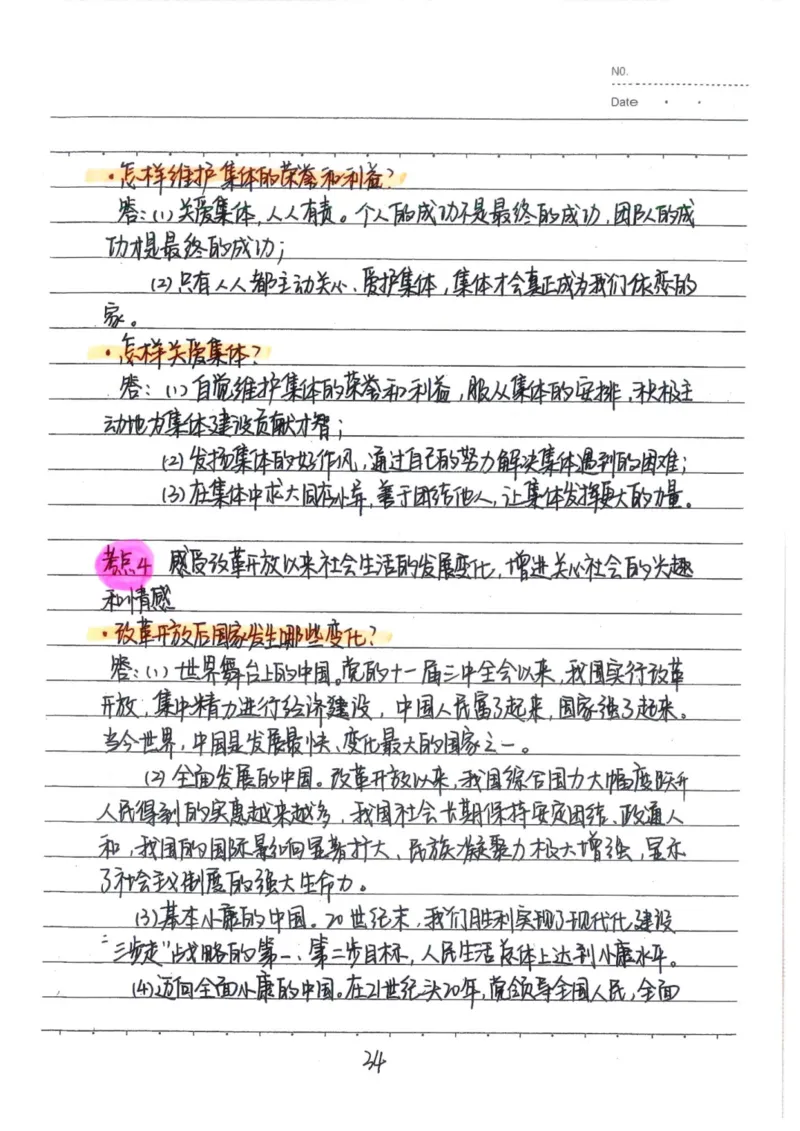 NO.
Date
·怎样维护集体的荣誉和利益?
答:(1)关爱集体,人人有责。个人的成功不是最终的成功,团队的成
功才是最终的成功;
(2)只有人人都主动关心、爱护集体,集体才会真正成为我们依恋的
家。
·怎样关爱集体?
答:(1)自觉维护集体的荣誉和利益,服从集体的安排,积极主
动地为集体建设贡献才智;
(2)发扬集体的好作风,通过自己的努力解决集体遇到的困难;
(3)在集体中求大同存小异,善于团结他人,让集体发挥更大的力量。
考点4 感受改革开放以来社会生活的发展变化,增进关心社会的兴趣
和情感
·改革开放后国家发生哪些变化?
答:(1)世界舞台上的中国。党的十一届三中全会以来,我国实行改革
开放,集中精力进行经济建设,中国人民富了起来,国家强了起来。
当今世界,中国是发展最快、变化最大的国家之一。
(2)全面发展的中国。改革开放以来,我国综合国力大幅度跃升
人民得到的实惠越来越多,我国社会长期保持安定团结、政通人
和,我国的国际影响显著扩大、民族凝聚力极大增强,显示
了社会主义制度的强大生命力。
(3)基本小康的中国。20世纪末,我们胜利实现了现代化建设
“三步走”战略的第一、第二步目标,人民生活总体上达到小康水平。
(4)迈向全面小康的中国。在21世纪头20年,党领导全国人民,全面
34